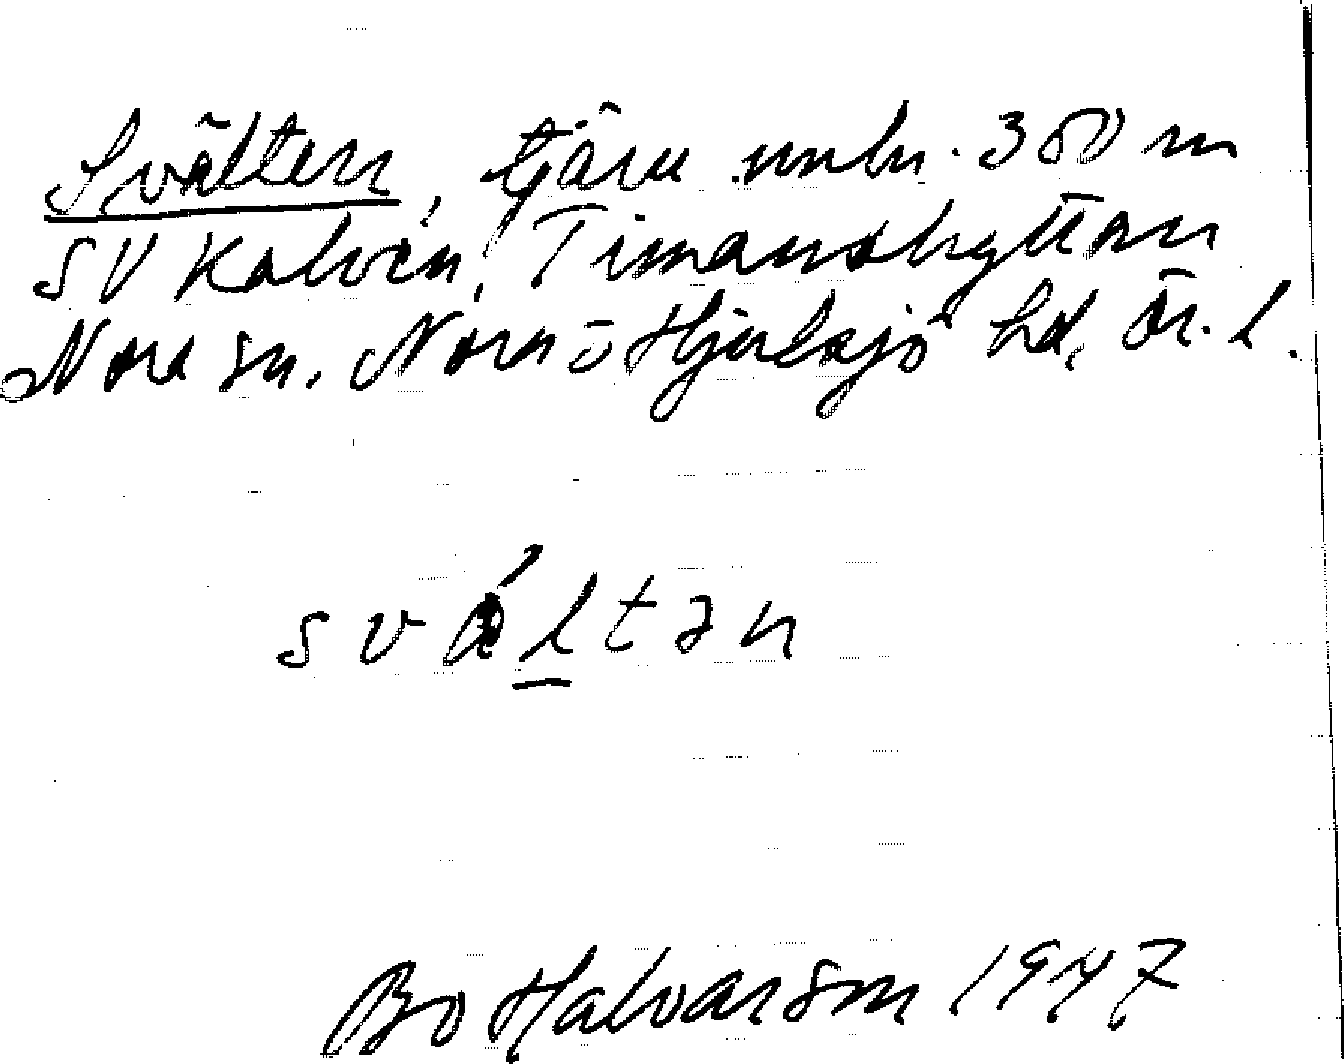 Svälten, tjärn omkr. 350 m
SV Kalven, Timanshyttan
Nora sn. Nora o Hjulsjö hd, Ör. l.
svältən
Bo Halvarson 1947